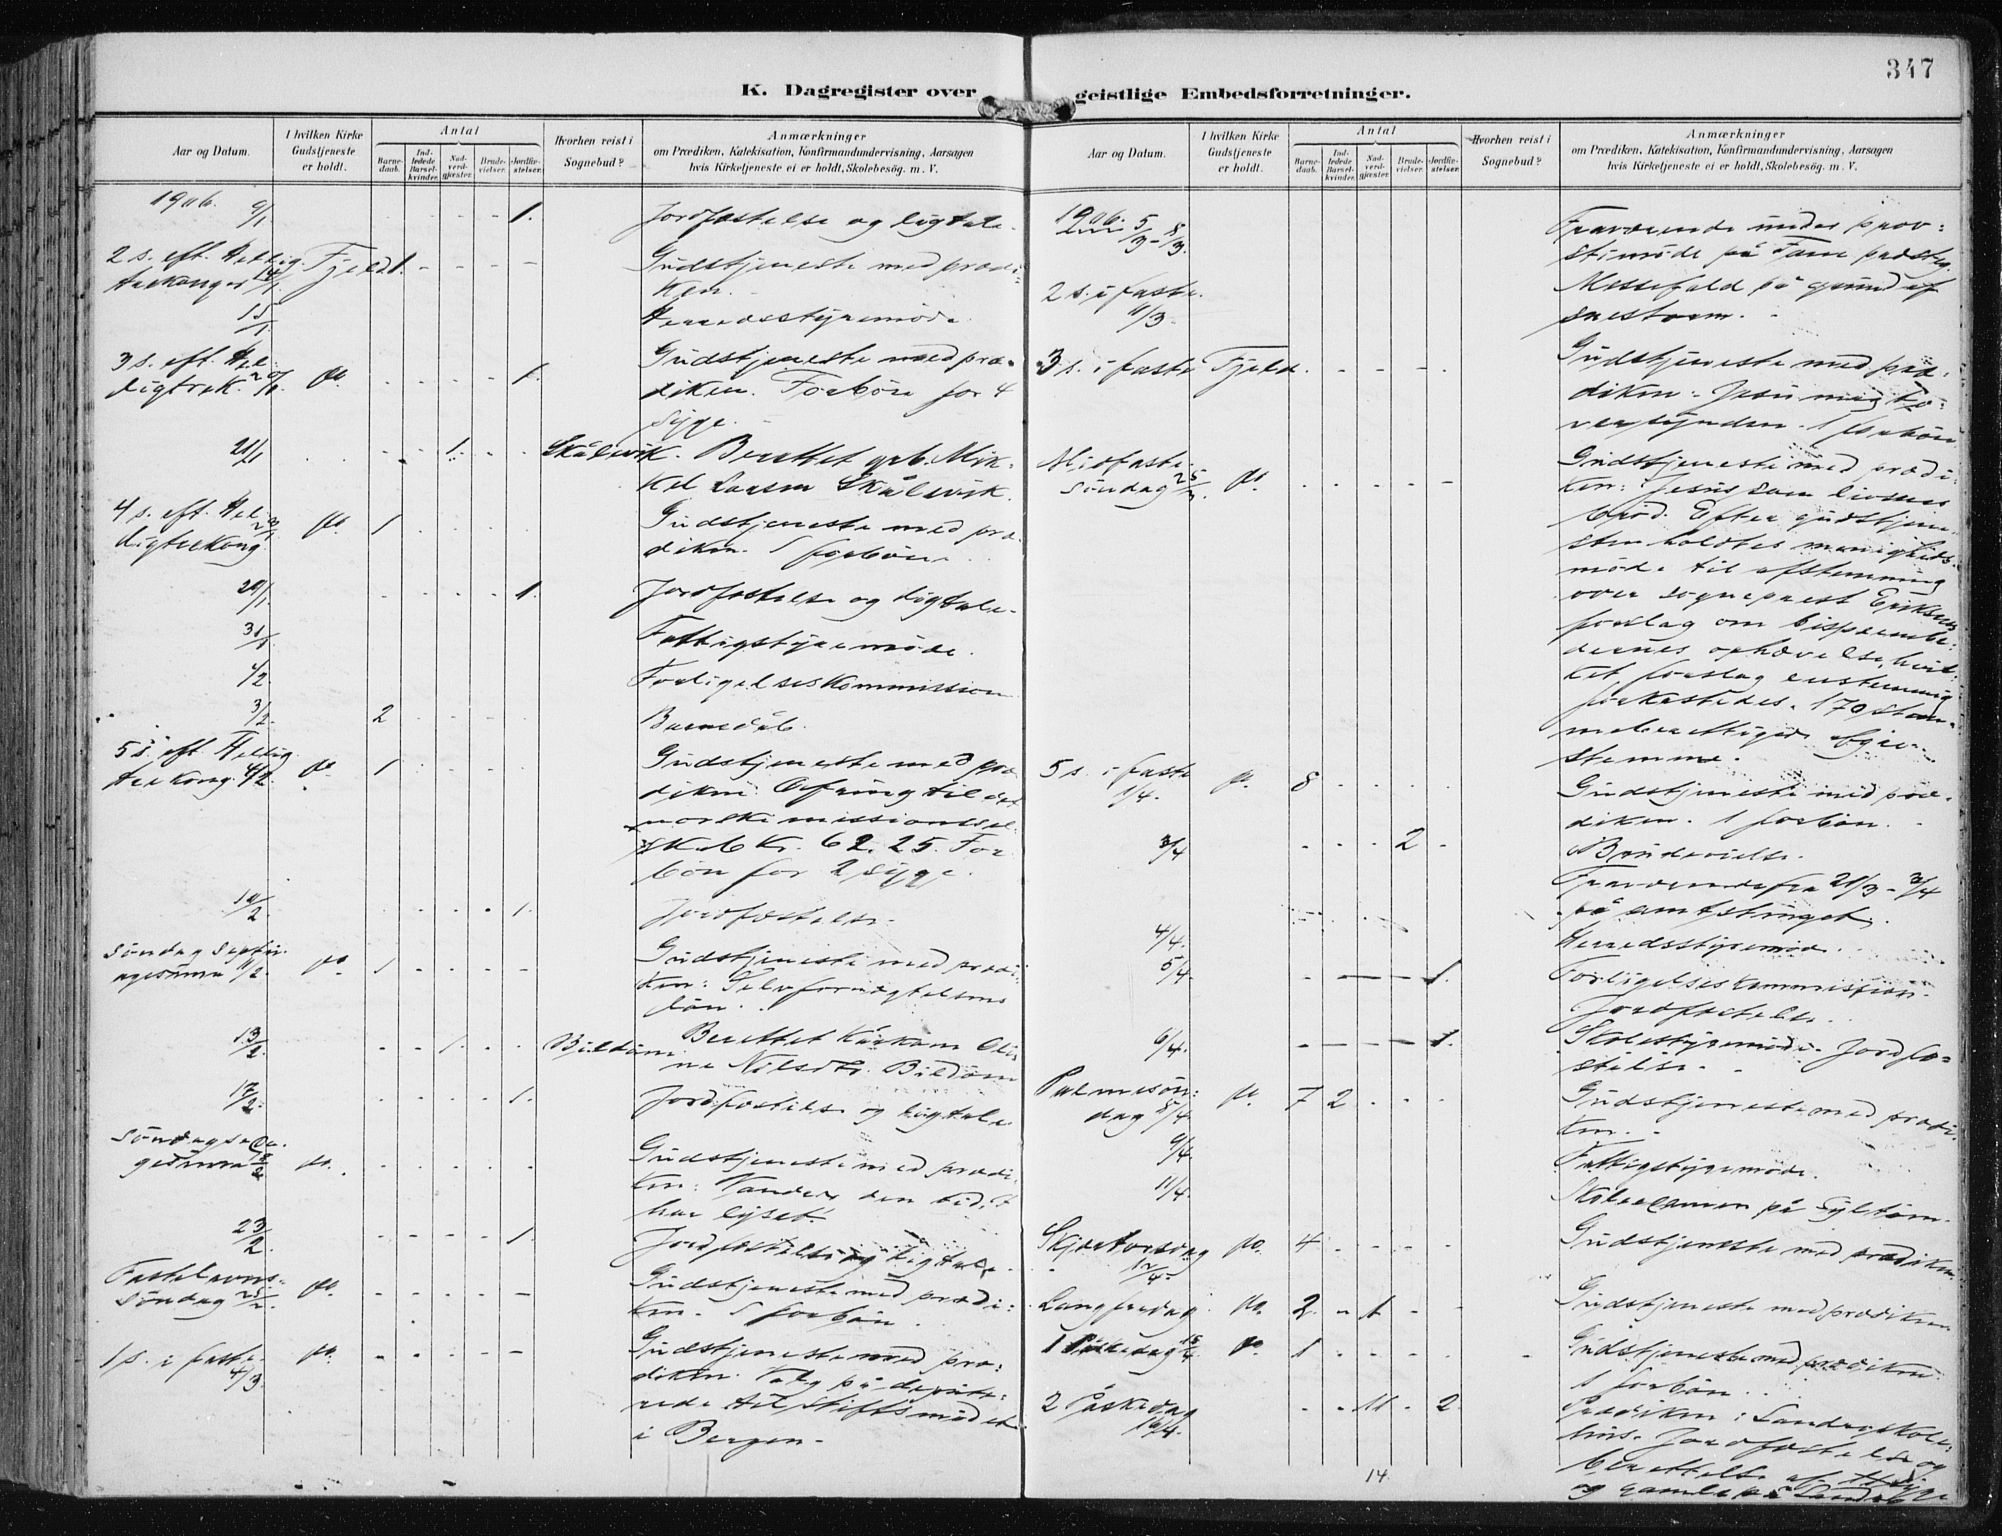 347
K. Dagregister over geistlige Embedsforretninger.
Aar og Datum.
I hvilken Kirke Gudstjeneste er holdt.
Antal
Barne-daab.
Ind-ledede Barsel-kvinder.
Nad-verd-gjæster.
Brude-vielser.
Jordfæ-stelser.
Hvorhen reist i Sognebud?
Anmærkninger
om Prædiken, Katekisation, Konfirmandundervisning, Aarsagen
hvis Kirketjeneste ei er holdt, Skolebesøg. m. V.
1906. 9/1 - - - - 1. Jordfæstelse og ligtale.
2 s. eft. Hellig- Fjeld 1. - - - - Gudstjeneste med prædi-
trekonger 14/1 ken.
15/1 Herredsstyremøde.
3 s. eft. Hel- do. - - - - 1. Gudstjeneste med præ-
ligtrek. diken. Forbøn for 4
syge.
21/1 - - 1. - - Skålevik. Berettet grb. Mik-
kel Larsen Skålevik.
4 s. eft. Hel- do. 1 Gudstjeneste med præ-
ligtrekong. diken. 1 forbøn.
- - - - 1. Jordfæstelse og ligtale.
31/1 Fattigstyremøde.
1/2 Forligelseskommission
3/2. 2 Barnedåb.
5 s. eft. Hellig- do. 1 Gudstjeneste med præ-
trekong. 4/2. diken. Ofring til det
norske missionssel-
skab Kr. 62.25. For-
bøn for 2 syge.
10/2. - - - - 1. Jordfæstelse.
Søndag Septu- do. 1 - - - - Gudstjeneste med prædi-
agesima 11/2. ken: Selvfornægtelsens
løn.
13/2. - - 1. - - Bildøen Berettet kårkone Oli-
ne Nilsdtr. Bildøen
17/2. 1. Jordfæstelse og ligtale
Søndag Sexa- do. - - - - - Gudstjeneste med prædi-
gesima 18/2 ken: Vandrer den tid I
har lyset.
23/2 - - - - 1. Jordfæstelse og ligtale.
Fastelavns- do. - - - - - Gudstjeneste med prædi-
søndag 25/2. ken. 1 forbøn.
1 s. i faste do. - - - - - Gudstjeneste med præ-
4/3. diken. Valg på depute-
rede til Stiftsmødet
i Bergen.
Aar og Datum.
I hvilken Kirke Gudstjeneste er holdt.
Antal
Barne-daab.
Ind-ledede Barsel-kvinder.
Nad-verd-gjæster.
Brude-vielser.
Jordfæ-stelser.
Hvorhen reist i Sognebud?
Anmærkninger
om Prædiken, Katekisation, Konfirmandundervisning, Aarsagen
hvis Kirketjeneste ei er holdt, Skolebesøg. m. V.
1906. 5/3 - 8/3. Fraværende under prov-
stimøde på Fane præsteg.
2 s. i faste. Messefald på grund af
11/3. snestorm.
3 s. i faste Fjeld. - - - - Gudstjeneste med præ-
diken: Jesu magt o-
ver synden. 1 forbøn
Midfaste- Gudstjeneste med prædi-
søndag 25/3. do. - - - - - ken: Jesus som livsens
brød. Efter gudstjene-
sten holdtes menigheds-
møde til afstemning
over sogneprest Eriksens
forslag om bispeembe-
dernes ophævelse, hvil-
ket forslag enstemmig
forkastedes. 170 stem-
meberettigede afgav
stemme.
5 s. i faste do. 8 - - - - Gudstjeneste med præ-
1/4. diken. 1 forbøn.
3/4 - - - 2 - Brudevielse.
Fraværende fra 21/3 - 3/4
på amtstinget.
4/4. Herredsstyremøde.
5/4 1. Forligelseskommission.
Jordfæstelse.
6/4. 1. Skolestyremøde. Jordfæ-
stelse.
Palmesøn- do. 7 2 - - - Gudstjeneste med prædi-
dag 8/4. ken.
9/4. Fattigstyremøde.
11/4. Skoleexamen på
Skjærtorsdag do. 4 - - - - Gudstjeneste med prædiken.
12/4.
Langfredag do. 2 - 1 - - Gudstjeneste med prædiken
1 Påskedag 15/4 do. 1 - - - - Gudstjeneste med prædiken.
1 forbøn.
2 Påskedag - - 11 - 2. Prædiken: skole-
16/4. hus. Jordfæstelse og
berettelse af
og gamle på
14